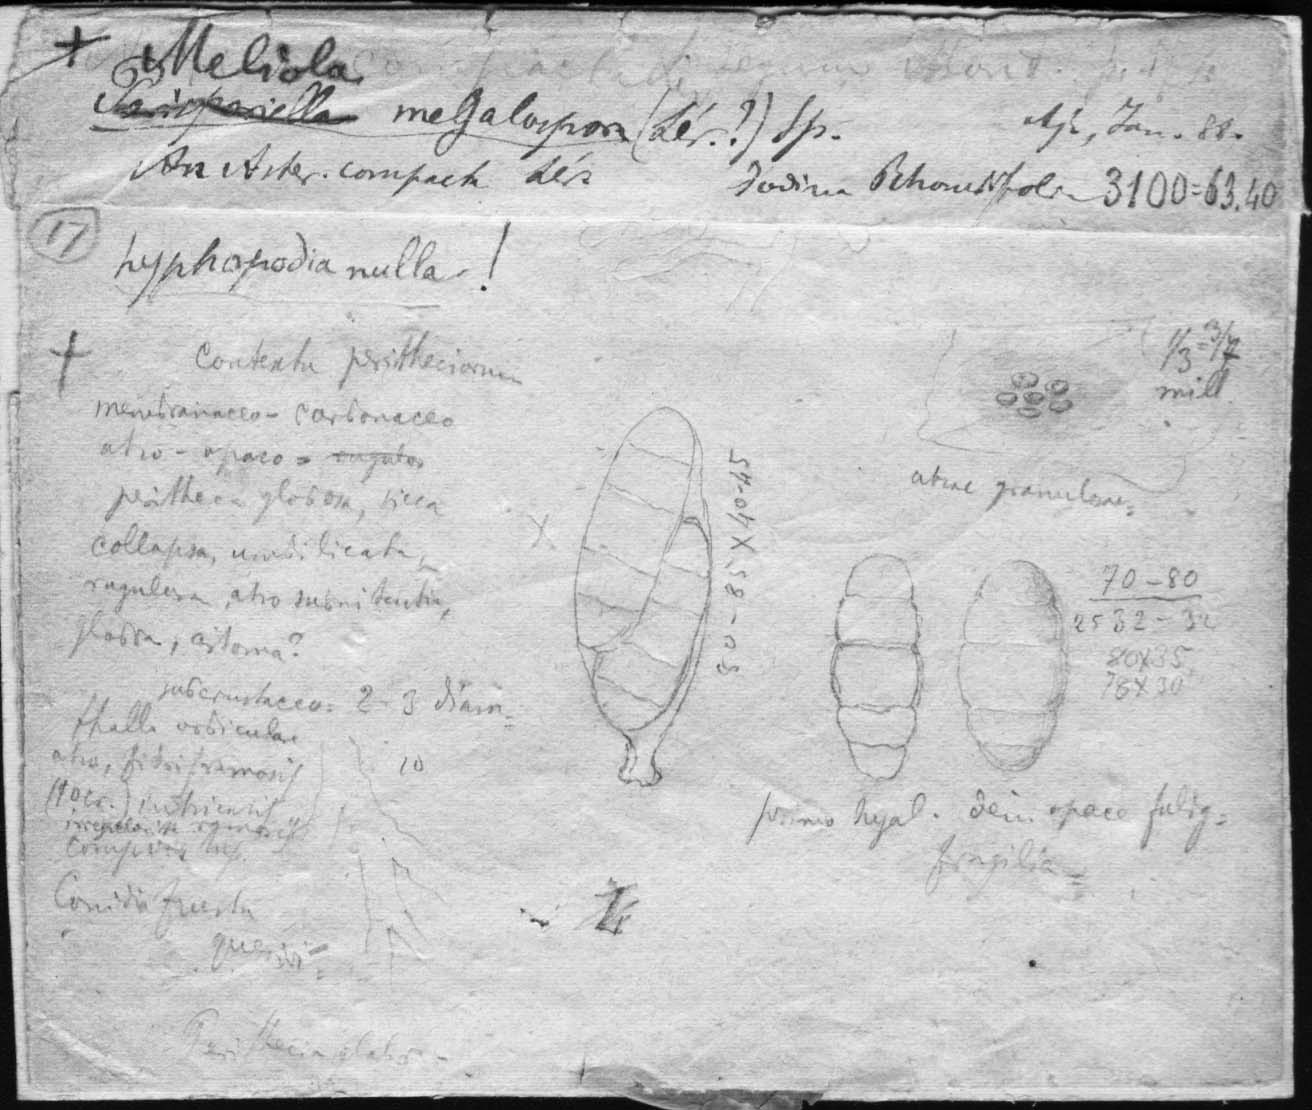 + Meliola
megalospora (Lév.?) Sp.
Jan. 88.
An Aster. compacta Lév
Jodina Rhombifolia 3100=63.40
17
hyphopodia nulla!
+ Contextu peritheciorum
membranaceo-carbonaceo
atro-opaco =
perithecia globosa, sicca
collapsa, umbilicata,
rugulosa, atro subnitentia,
globosa, astoma?
subcrustaceo. 2-3 diam.
thallo orbiculare
atro,
10
(10cr.) intricatis
Conidia frustra
quesivi=
Perithecia glabra -
X
50-85 X 40-45
1/3=3/7
mill.
atrae granulosae.
70-80
25 32-32
80X35
78X30
primo hyal. dein opace fulig=
fragilia=